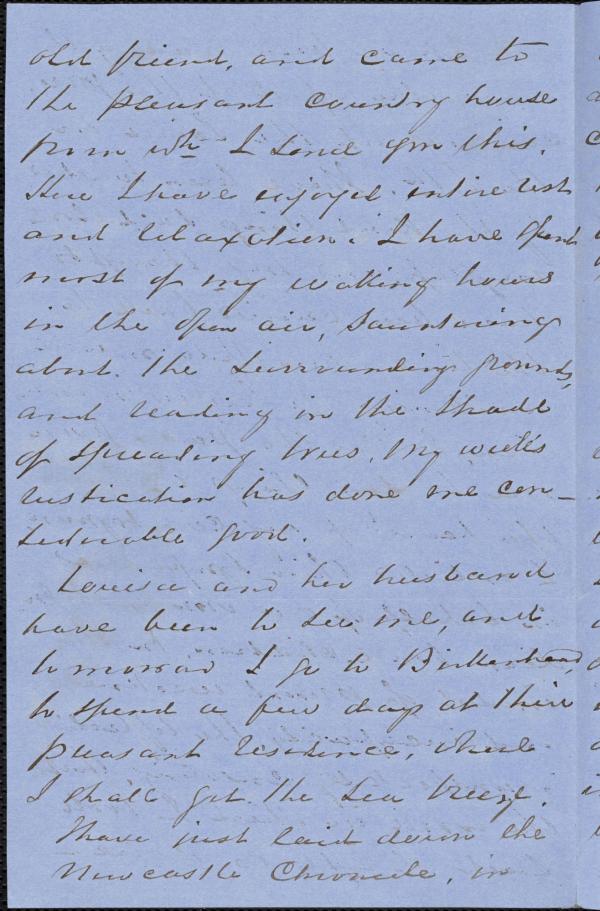 old friend, and came to
the pleasant country house
from wh. I send you this.
Here I have enjoyed entire rest
and relaxation. I have spent
most of my waking hours
in the open air, sauntering
about the surrounding grounds,
and reading in the shade
of spreading trees. My week's
rustication has done me con-
siderable good.
Louisa and her husband
have been to see me, and
tomorrow I go to Birkenhead,
to spend a few days at their
pleasant residence, where
I shall get the sea breeze.
I have just laid down the
Newcastle Chronicle, in